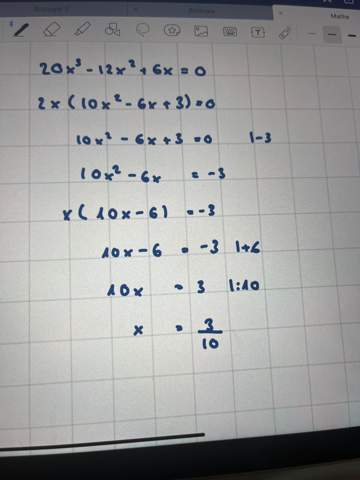 Mathe
20x³ - 12x² + 6x = 0
2x (10x² - 6x + 3) = 0
10x² - 6x + 3 = 0 |-3
10x² - 6x = -3
x (10x - 6) = -3
10x - 6 = -3 |+6
10x = 3 |:10
x = 3/10